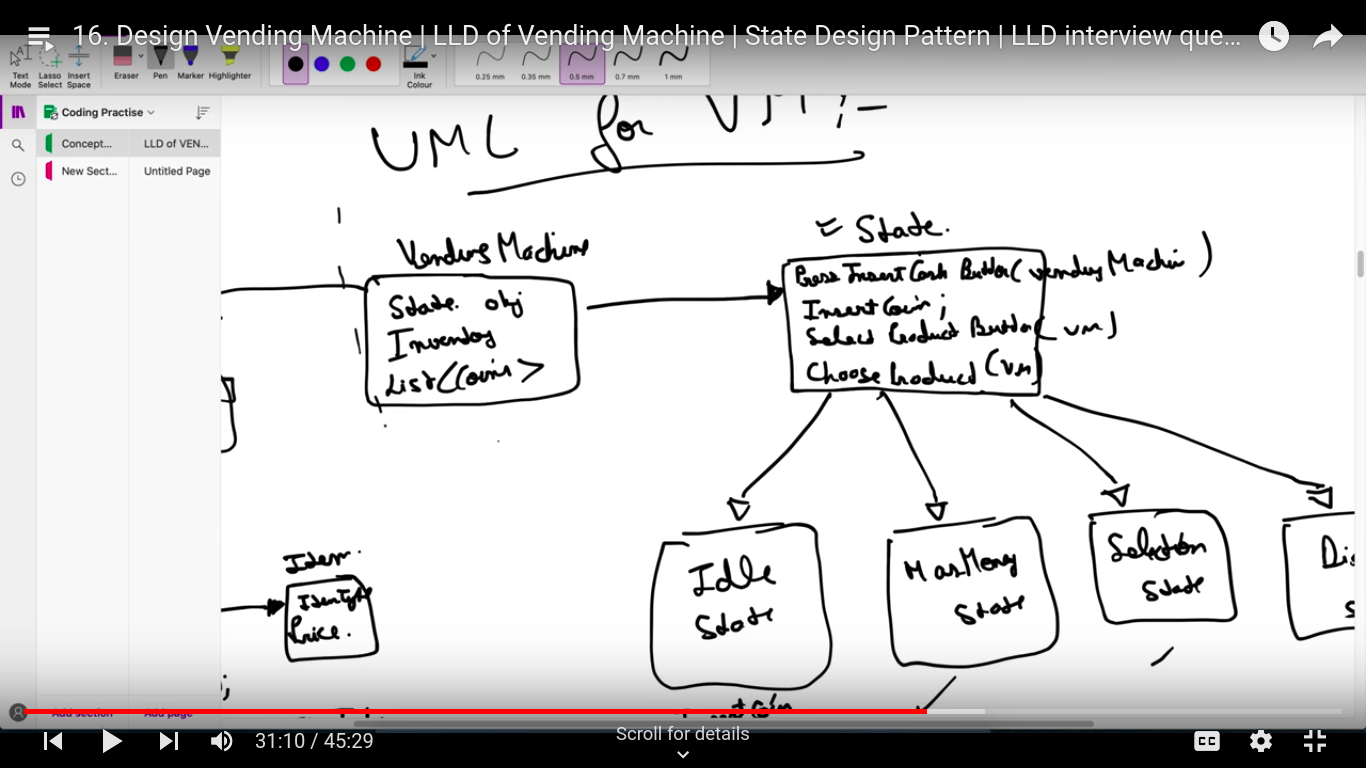 16. Design Vending Machine | LLD of Vending Machine | State Design Pattern | LLD interview que...
Text Mode
Lasso Select
Insert Space
Eraser
Pen
Marker
Highlighter
Ink Colour
0.25 mm
0.35 mm
0.5 mm
0.7 mm
1 mm
Coding Practise
Concept...
LLD of VEN...
New Sect...
Untitled Page
UML for VM :-
Vending Machine
State obj
Inventory
List<Coins>
State.
Press Insert Cash Button (vending Machin)
Insert Coin;
Select Product Button (vm)
Choose Product (vm)
Item.
ItemType
Price.
Idle
State
HasMoney
State
Selection
State
Dis
S
Add section
Add page
31:10 / 45:29
Scroll for details
CC